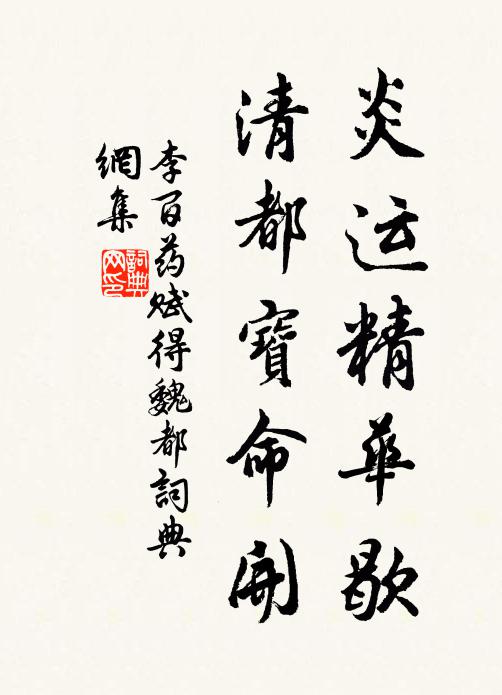 炎运精華歇
清都寶命開
李百药赋得魏都詞典
網集
詞典网印